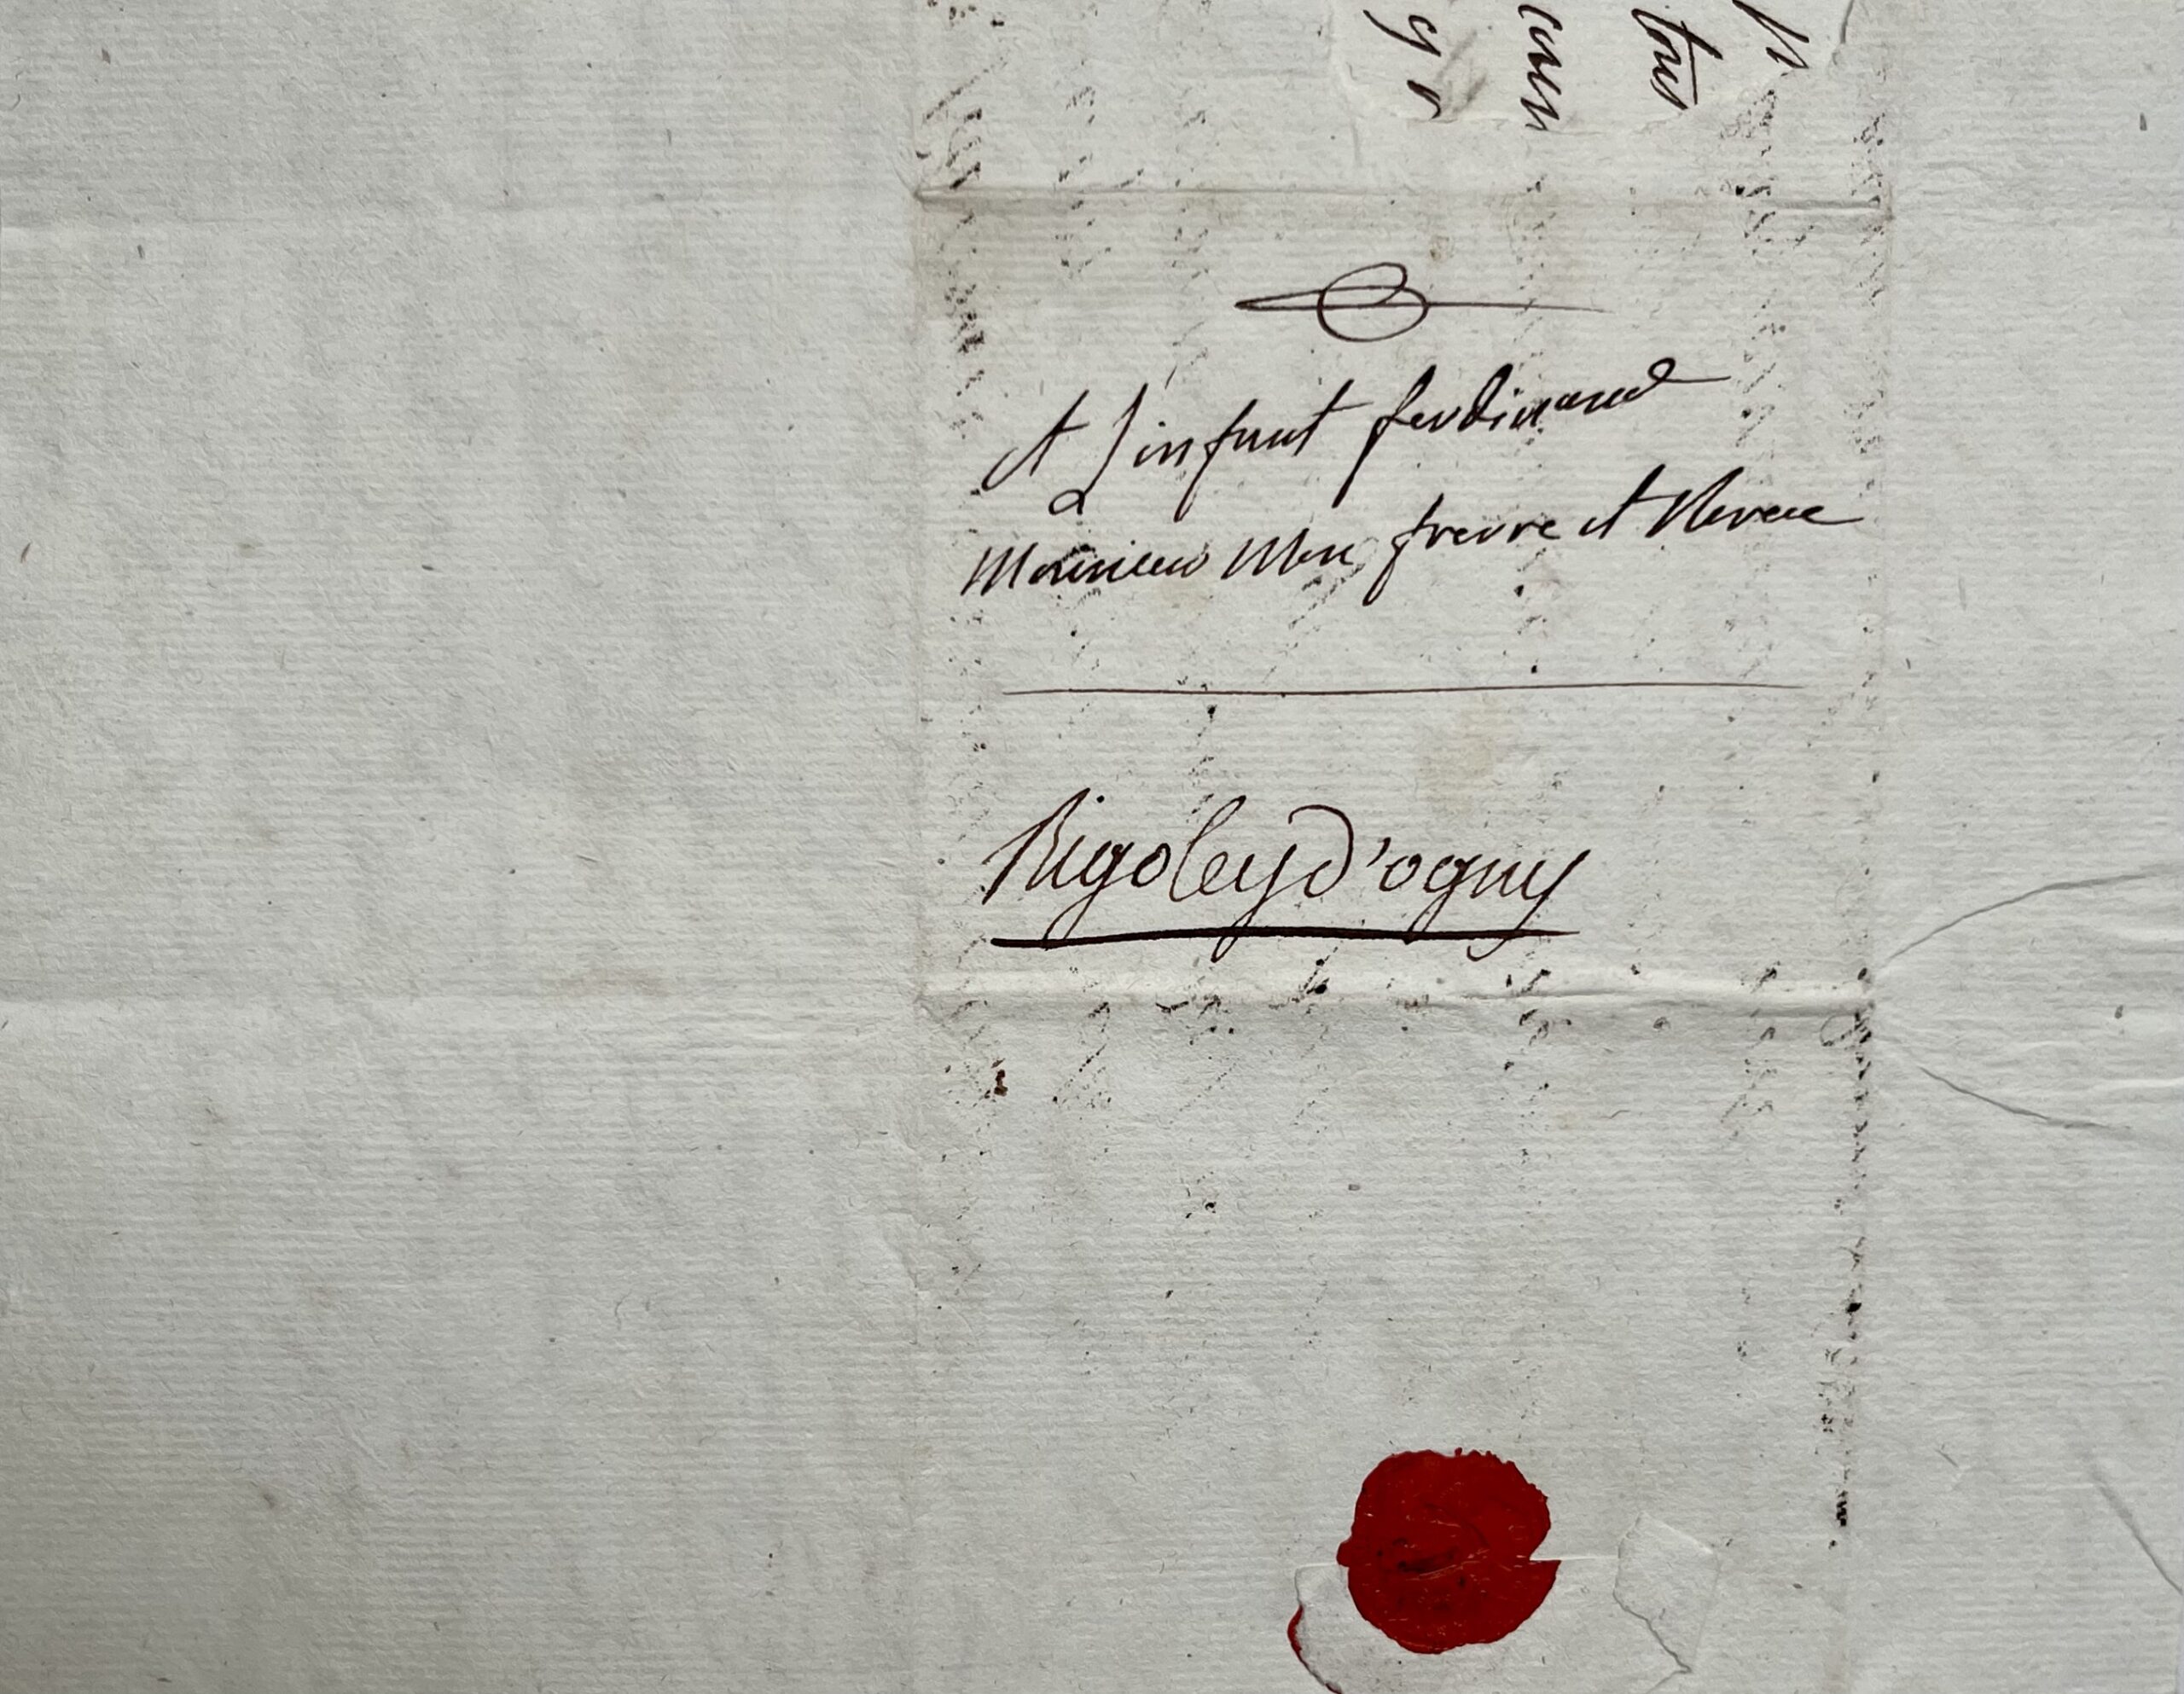 A l'infant ferdinand
a
Monsieur Mon frevre et Neveu
Rigoley d'ogny
tous